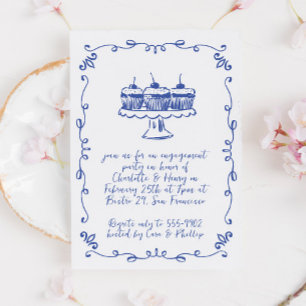 join us for an engagement
party in honor of
Charlotte & Henry on
February 25th at 7pm at
Bistro 29, San Francisco
Regrets only to 555-9902
hosted by Cara & Phillip